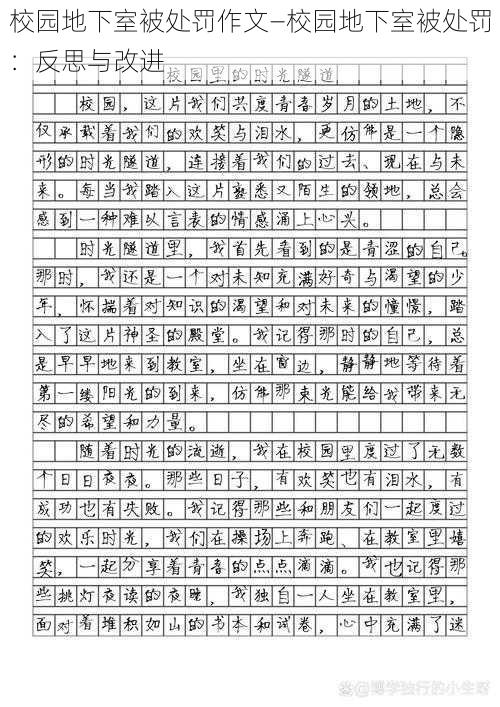 校园地下室被处罚作文—校园地下室被处罚
：反思与改进
校园里的时光隧道
校园，这片我们共度青春岁月的土地，不
仅承载着我们的欢笑与泪水，更仿佛是一个隐
形的时光隧道，连接着我们的过去、现在与未
来。每当我踏入这片熟悉又陌生的领地，总会
感到一种难以言表的情感涌上心头。
时光隧道里，我首先看到的是青涩的自己。
那时，我还是一个对未知充满好奇与渴望的少
年，怀揣着对知识的渴望和对未来的憧憬，踏
入了这片神圣的殿堂。我记得那时的自己，总
是早早地来到教室，坐在窗边，静静地等待着
第一缕阳光的到来，仿佛那束光能给我带来无
尽的希望和力量。
随着时光的流逝，我在校园里度过了无数
个日日夜夜。那些日子，有欢笑也有泪水，有
成功也有失败。我记得那些和朋友们一起度过
的欢乐时光，我们在操场上奔跑、在教室里嬉
笑，一起分享着青春的点点滴滴。我也记得那
些挑灯夜读的夜晚，我独自一人坐在教室里，
面对着堆积如山的书本和试卷，心中充满了迷
@博学独行的小生呀